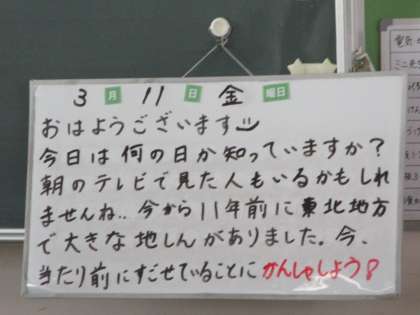 3月11日 金曜日
おはようございます
今日は何の日か知っていますか?
朝のテレビで見た人もいるかもしれ
ませんね..今から11年前に東北地方
で大きな地しんがありました。今、
当たり前にすごせていることにかんしゃしよう!